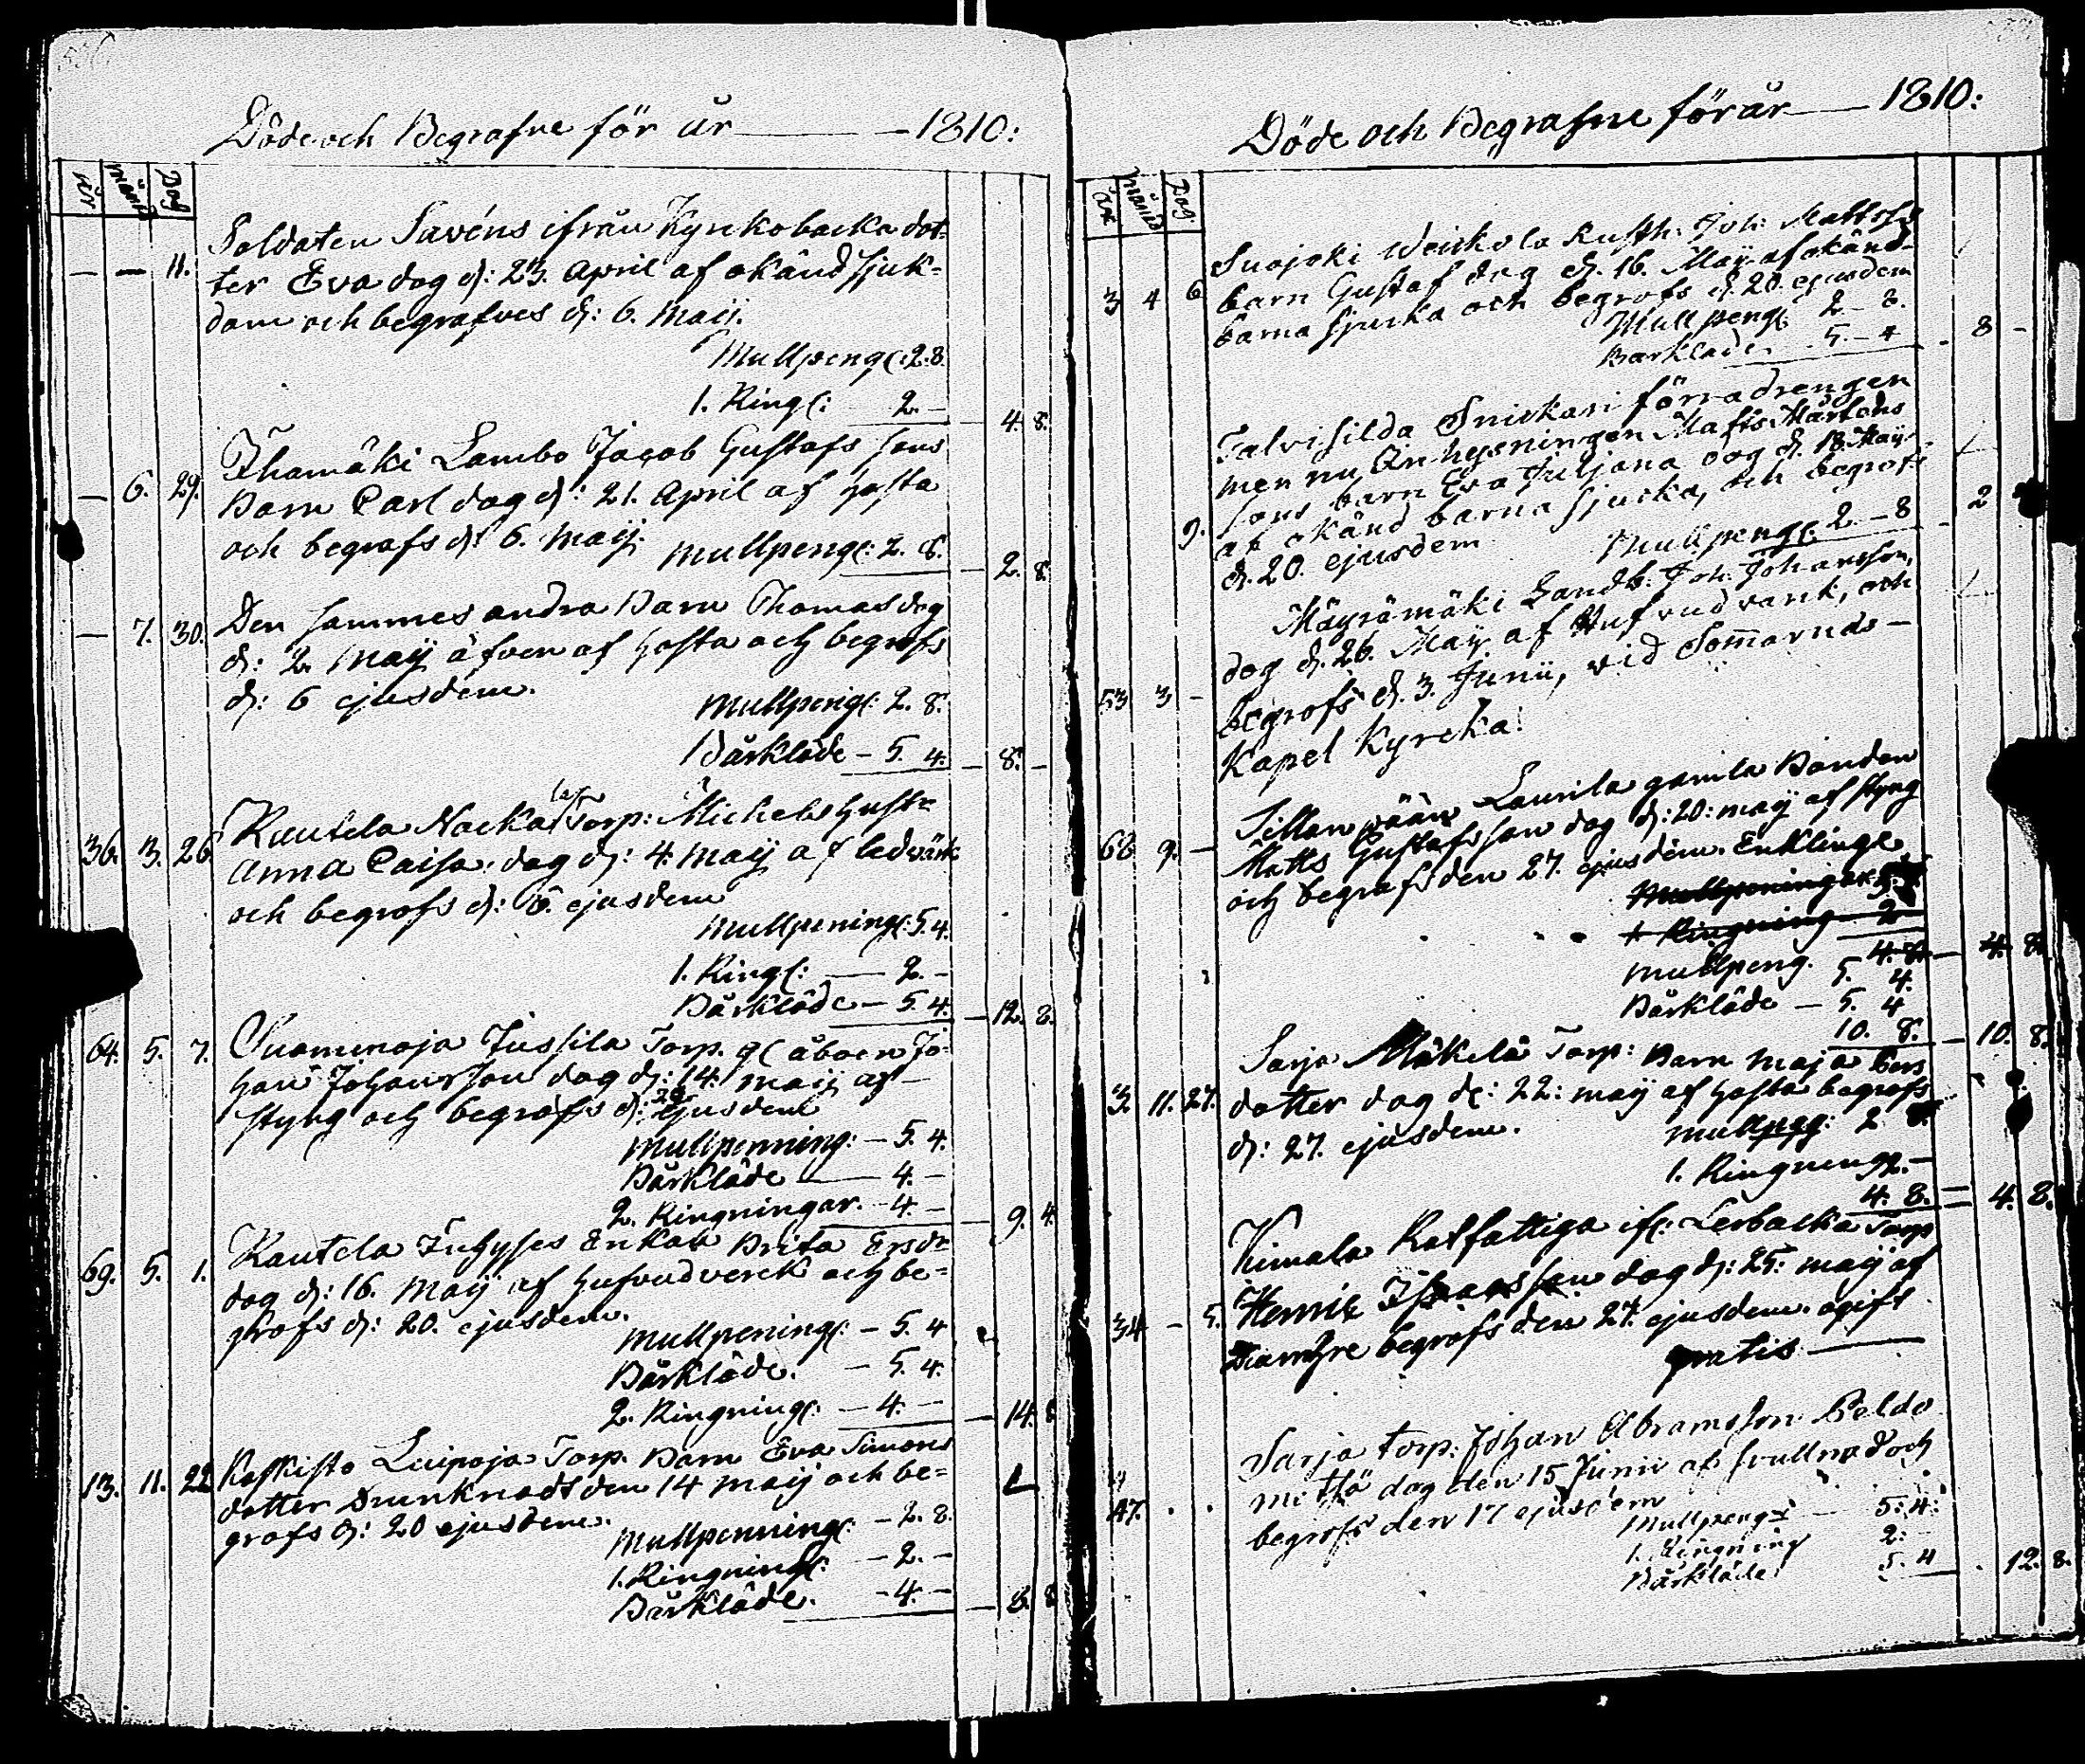 Döde och Begrafne för år — 1810:
år månd Dag
Soldaten Savéns ifrån Kyrckobacka dot=
— — 11. ter Eva dog d: 23. April af okänd sjuk=
dom och begrafves d: 6. Maij.
Mullpeng: 2. 8.
1. Ring: 2. — 4. 8.
Ihamäki Lambo Jacob Gustafs sons
— 6. 29. Barn Carl dog d: 21. April af hosta
och begrafs d: 6. Maij.
Mullpeng: 2. 8. — 2. 8.
— 7. 30. Den sammes andra Barn Thomas dog
d: 2. Maij äfven af hosta och begrofs
d: 6 ejusdem.
Mullpeng: 2. 8.
Bårkläde — 5. 4. — 8. —
Rautela Nacka Torp: Michels hust=
36. 3. 26. Anna Caisa dog d: 4. Maij af ledvärk
och begrofs d: 6. ejusdem
Mullpening: 5. 4.
1. Ring: — 2. —
Bårkläde — 5. 4. — 12. 8.
64. 5. 7. Suomenoja Jussila Torp. gl åboen Jo=
han Johansson dog d: 14. Maij af —
styng och begrafs d: 20 ejusdem
Mullpenning: — 5. 4.
Bårkläde — 4. —
2. Ringningar. — 4. — 9. 4.
Rautela Enkan Brita Ersdr
69. 5. 1. dog d: 16. Maij af hufvudverck och be=
grofs d: 20. ejusdem.
Mullpening: — 5. 4
Bårkläde. — 5. 4.
2. Ringning: — 4. — — 14. 8
Koskisto Leipoja Torp. Barn Eva Simons
13. 11. 22 dotter Drunknadt den 14 Maij och be=
grofs d: 20 ejusdem.
Mullpenning: — 2. 8.
1. Ringning: — 2. —
Bårkläde. — 4. — — 8. 8
Döde och Begrafne för år — 1810:
år månd Dag.
Suojoki Weickola Rusth: Joh: Mattss
3 4 6 barn Gustaf dog d. 16. Maij af okänd
barna sjucka och begrofs d. 20. ejusdem
Mullpeng: 2 — 8.
Barkläde. 5. — 4 8 —
Talvisilda Snickari förra drengen
men nu Inhysningen Matts Mårtens
sons barn Eva Juljana dog d. 18. Maij
9. af okänd barna sjucka, och begrofs
d. 20. ejusdem Mullpeng. 2. — 8 2
Mäyrämäki Landb: Joh: Johansson,
dog d. 26. Maij af Hufvudvärk, och
53 3 — begrofs d. 3. Junii, vid Somarnäs —
Kapel Kyrcka.
Sillanpään Laurila gamla Bonden
68 9. — Matts Gustafsson dog d: 20: maij af styng
och begrafs den 27. ejusdem. Enklinge
Mullpeningar
1 Ringning 2
4. 8. — 4. 8.
Mullpeng. 5. 4.
Bårkläde — 5. 4
10. 8. — 10. 8.
Sarja Mäkelä Torp: Barn Maja Ers
3. 11. 27. dotter dog d: 22: maij af hosta begrofs
d: 27. ejusdem. Mullpgg: 2 8.
1. Ringning 2. —
4. 8. — 4. 8.
Kimala Rotfattiga if: Lerbacka Torp
Henric Isaacsson dog d: 25: maij af
34 — 5. begrofs den 27. ejusdem. ogift
gratis —
Sarja torp: Johan Abramsson Peldo
mettä dog den 15 Junii af svullnad och
47. begrofs den 17 ejusdem
Mullpeng: — 5: 4:
1. Ringning 2: —
Bårkläde. 5. 4 12. 8.